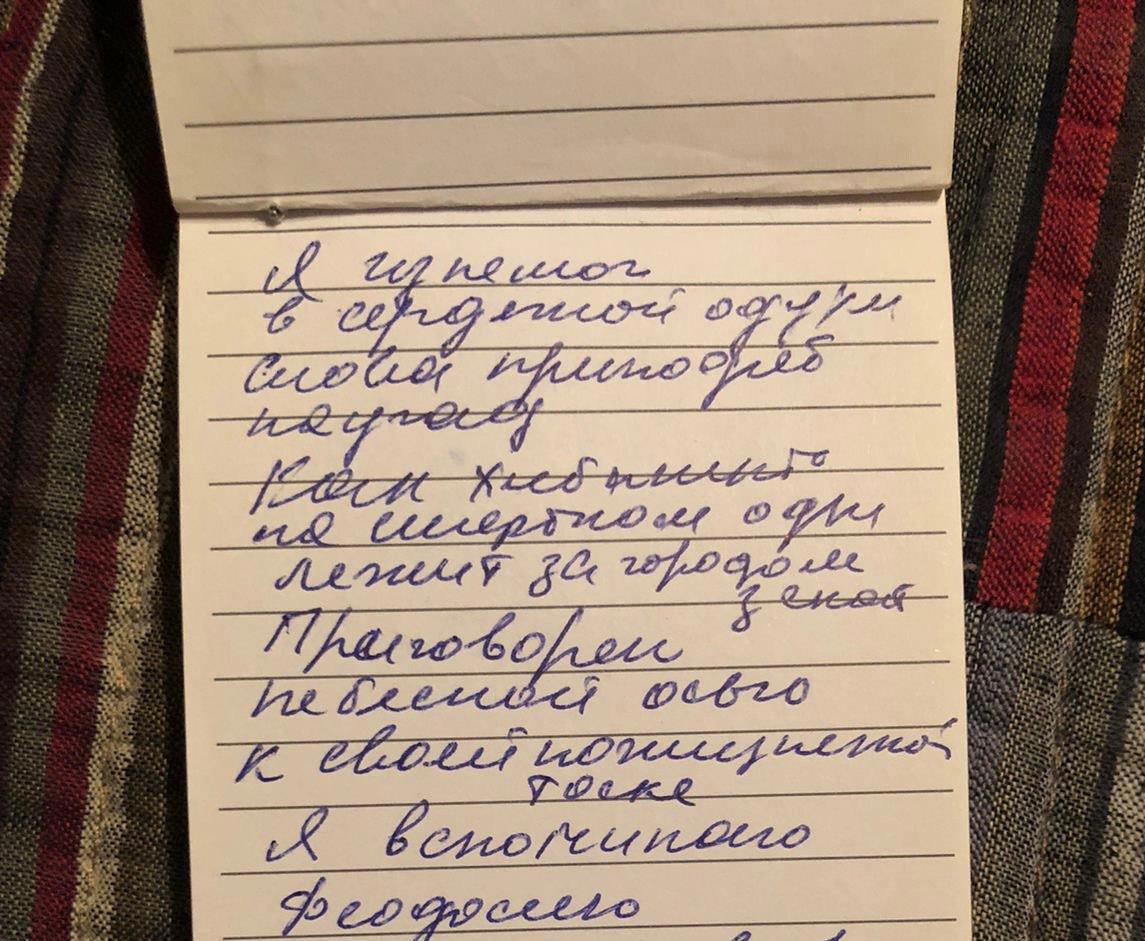 Я изнемог
в сердечной одури
слова приподняв
наугад
Как
на смертном одре
лежит за городом
закат
Приговорен
небесной осью
к своей пожизненной
тоске
Я вспоминаю
Феодосию